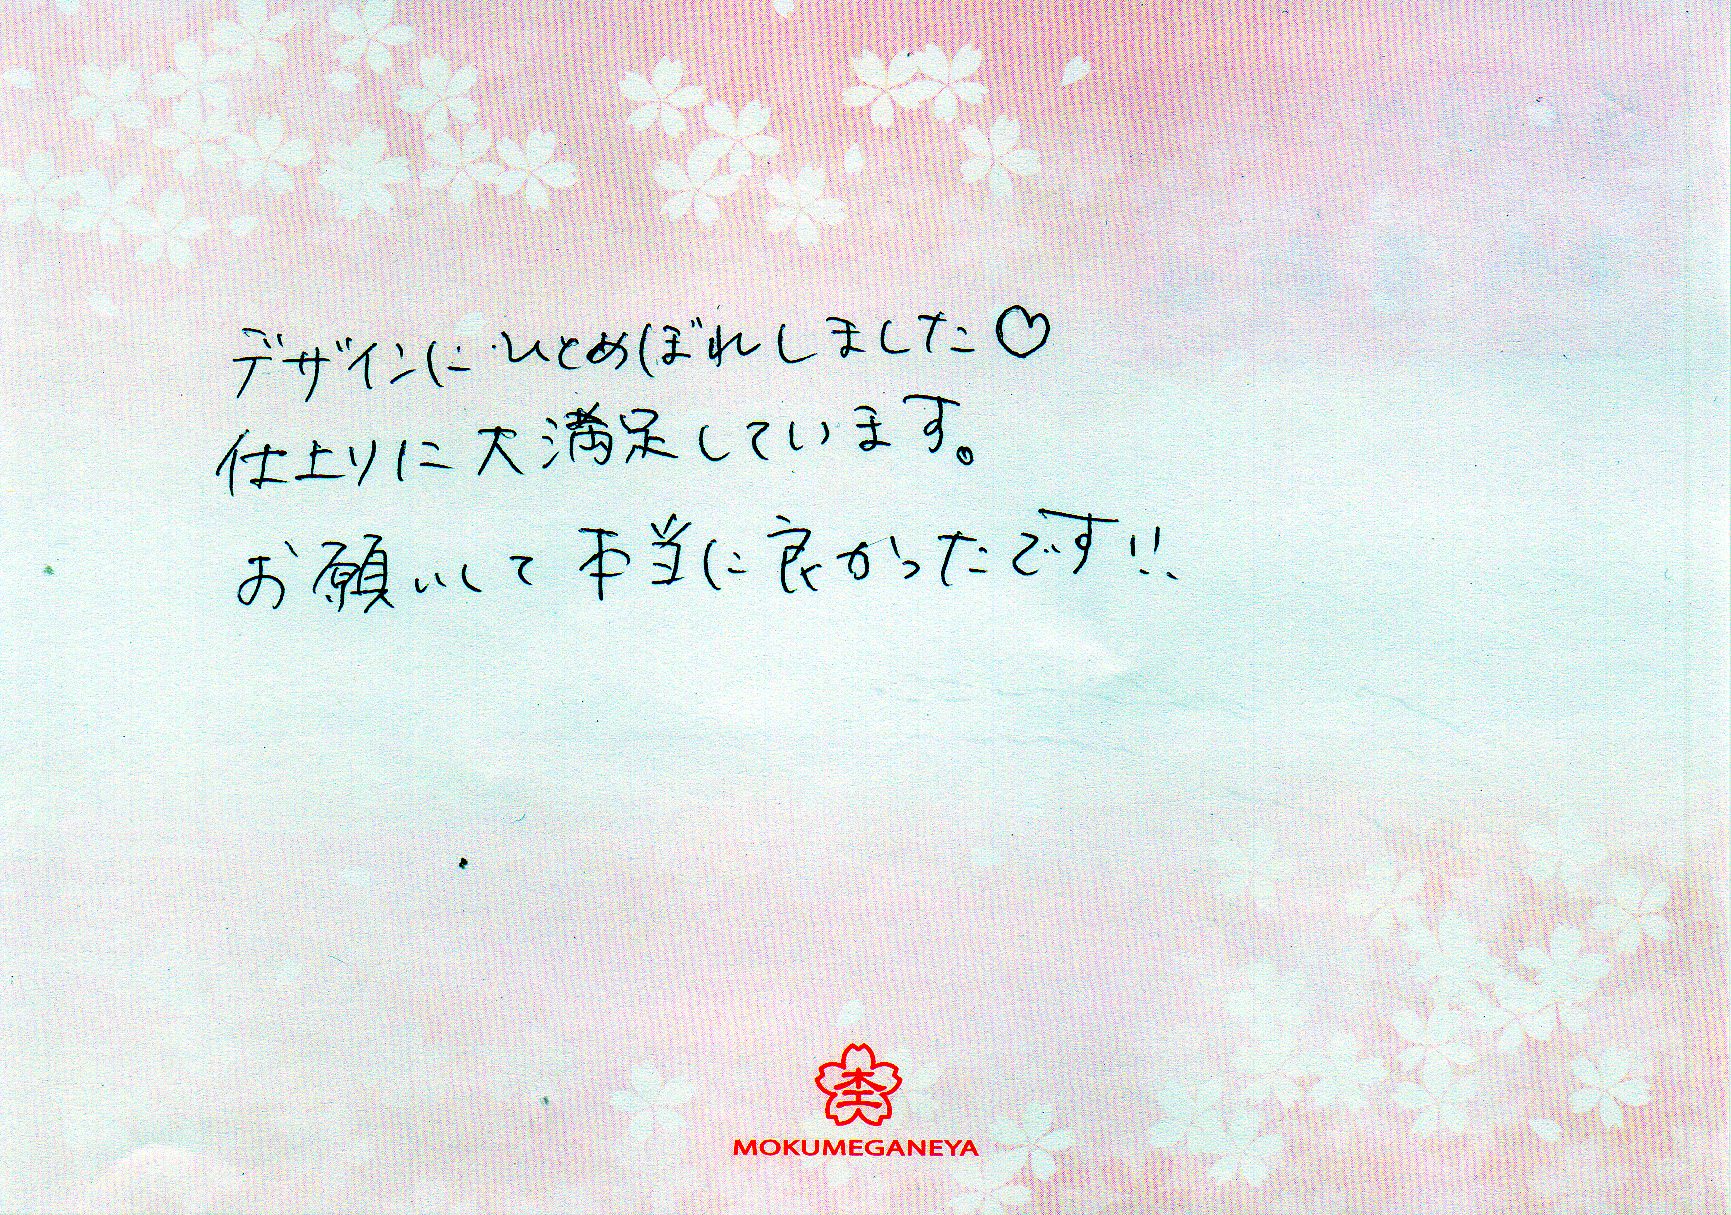 デザインにひとめぼれしました♡
仕上りに大満足しています。
お願いして本当に良かったです!!
MOKUMEGANEYA